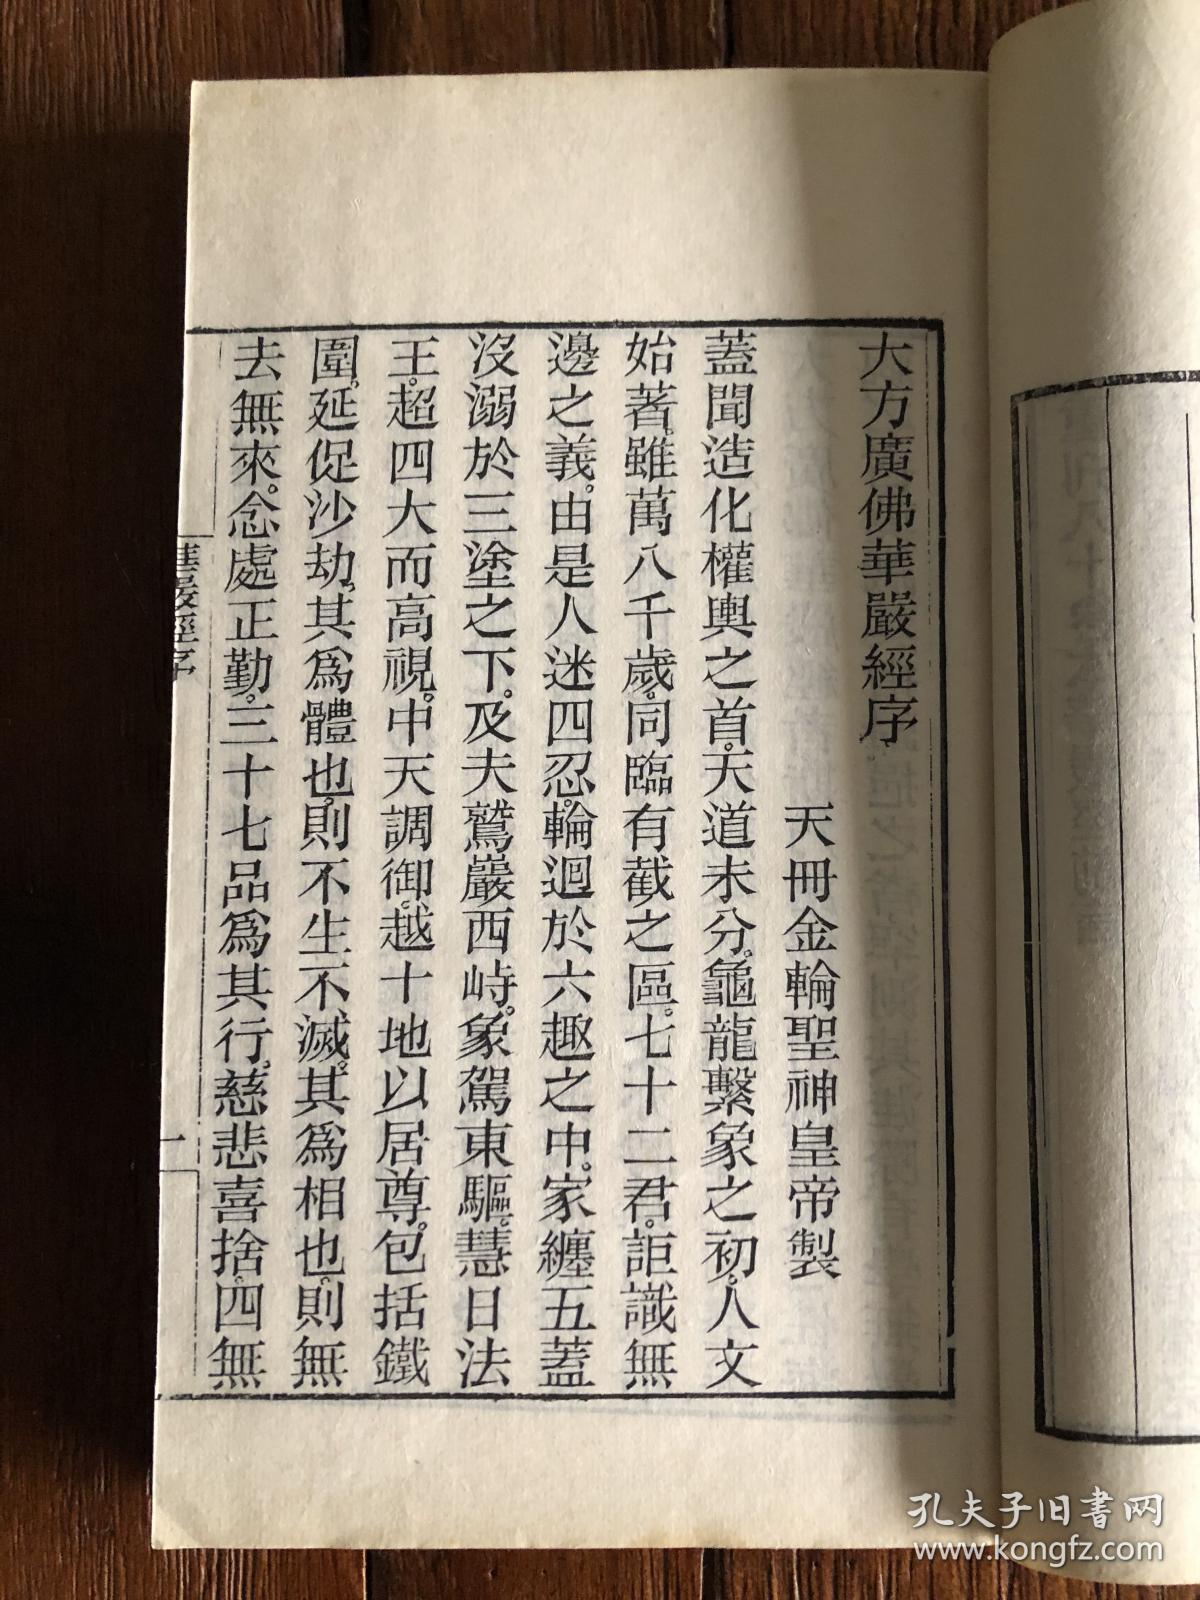 大方廣佛華嚴經序
天冊金輪聖神皇帝製
蓋聞造化權輿之首。天道未分。龜龍繫象之初。人文
始著。雖萬八千歲。同臨有截之區。七十二君。詎識無
邊之義。由是人迷四忍。輪迴於六趣之中。家纏五蓋
沒溺於三塗之下。及夫鷲巖西峙。象駕東驅。慧日法
王。超四大而高視。中天調御。越十地以居尊。包括鐵
圍。延促沙劫。其為體也。則不生不滅。其為相也。則無
去無來。念處正勤。三十七品為其行。慈悲喜捨。四無
華嚴經序
一
孔夫子旧书网
www.kongfz.com